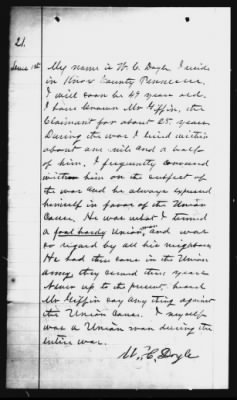 21.
My name is W. C. Doyle I reside
in Knox County Tennessee.
I will soon be 49 years old.
I have known Mr Giffin, the
Claimant for about 25 years
During the war I lived within
about one mile and a half
of him. I frequently conversed
with him on the subject of
the war and he always expressed
himself in favor of the Union
Cause. He was what I termed
a fool hardy Union man and was
so regard by all his neighbors
He had three sons in the Union
army they served three years
Never up to the present heard
Mr Giffin say any thing against
the Union Cause. I myself
was a Union man during the
entire war.
W. C. Doyle